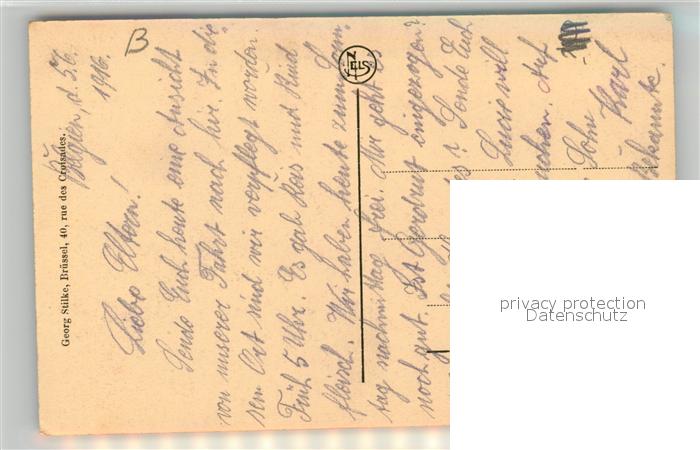 Georg Stilke, Brüssel, 40, rue des Croisades.
B
Belgien, d. 5.6.
1916.
Liebe Eltern!
Sende Euch heute eine Ansicht
von unserer Fahrt nach hier. In die-
sem Ort sind wir verpflegt worden
Früh 5 Uhr. Es gab Reis mit Rind
fleisch. Wir haben heute zum Sonn-
tag nachmittag frei. Mir geht es
noch gut. Ist Gerdrut eingezogen?
Sende Euch
Lucie will
Auf
Sohn
Karl
NELS
privacy protection
Datenschutz